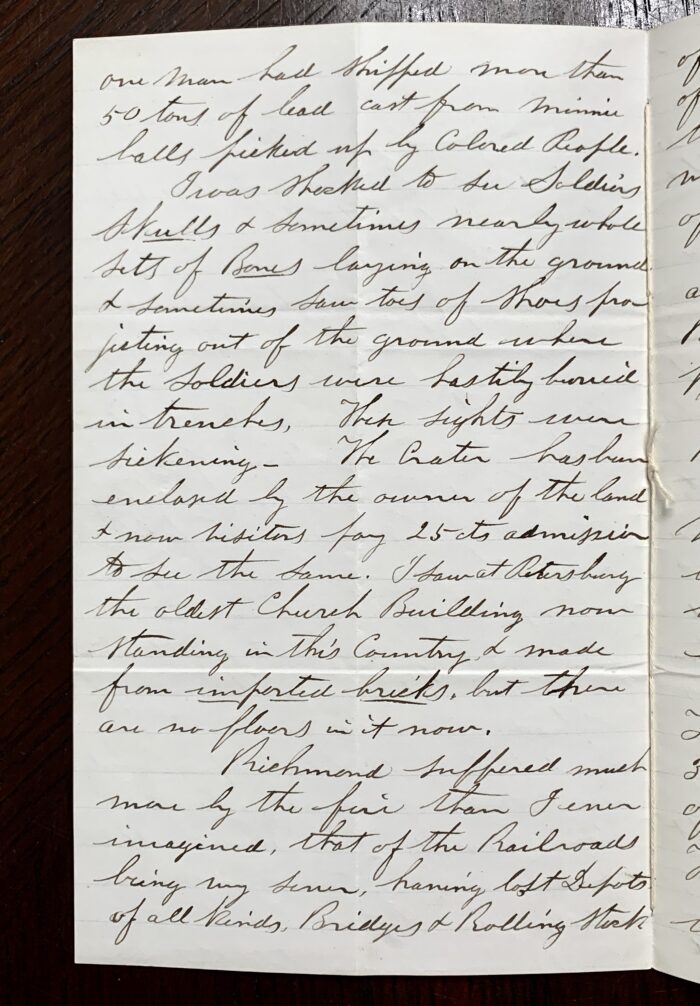 one man had shipped more than
50 tons of lead cast from minnie
balls picked up by Colored People.
I was shocked to see Soldiers
Skulls & sometimes nearly whole
sets of Bones laying on the ground
& sometimes saw toes of shoes pro
jecting out of the ground where
the soldiers were hastily buried
in trenches, These sights were
sickening – The Crater has been
enclosed by the owner of the land
& now visitors pay 25 cts admission
to see the same. I saw at Petersburg
the oldest Church Building now
standing in this Country, & made
from imported bricks, but there
are no floors in it now.
Richmond suffered much
more by the fire than I ever
imagined, that of the Railroads
being very sever, having lost Depots
of all kinds, Bridges & Rolling Stock